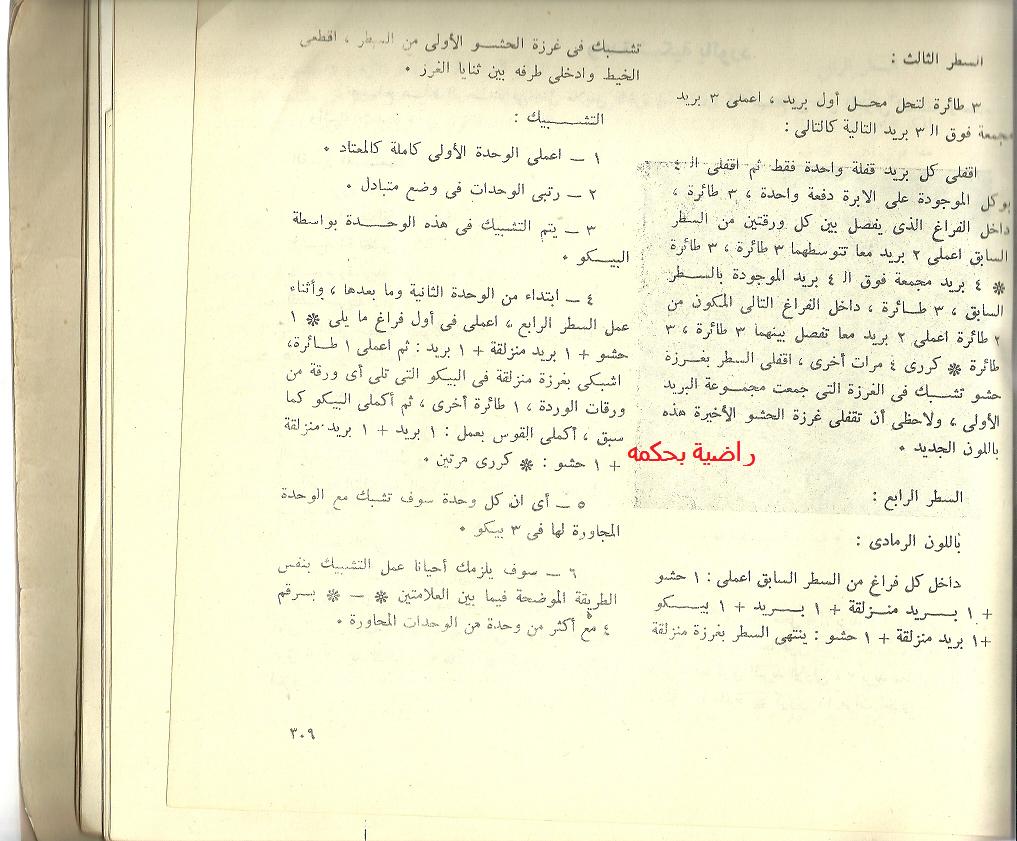 السطر الثالث :
٣ طائرة لتحل محل أول بريد ، اعملى ٣ بريد
مجمعة فوق الـ ٣ بريد التالية كالتالى :
اقفلى كل بريد قفلة واحدة فقط ثم اقفلى الـ ٤
بوكل الموجودة على الابرة دفعة واحدة ، ٣ طائرة ،
داخل الفراغ الذى يفصل بين كل ورقتين من السطر
السابق اعملى ٢ بريد معا تتوسطهما ٣ طائرة ، ٣ طائرة
* ٤ بريد مجمعة فوق الـ ٤ بريد الموجودة بالسطر
السابق ، ٣ طائرة ، داخل الفراغ التالى المكون من
٢ طائرة اعملى ٢ بريد معا تفصل بينهما ٣ طائرة ، ٣
طائرة * كررى ٤ مرات أخرى ، اقفلى السطر بغرزة
حشو تشبك فى الغرزة التى جمعت مجموعة البريد
الأولى ، ولاحظى أن تقفلى غرزة الحشو الأخيرة هذه
باللون الجديد .
السطر الرابع :
باللون الرمادى :
داخل كل فراغ من السطر السابق اعملى : ١ حشو
+ ١ بريد منزلقة + ١ بريد + ١ بيكو
+١ بريد منزلقة + ١ حشو : ينتهى السطر بغرزة منزلقة
تشبك فى غرزة الحشو الأولى من السطر ، اقطعى
الخيط وادخلى طرفه بين ثنايا الغرز .
التشبيك :
١ – اعملى الوحدة الأولى كاملة كالمعتاد .
٢ – رتبى الوحدات فى وضع متبادل .
٣ – يتم التشبيك فى هذه الوحدة بواسطة
البيكو .
٤ – ابتداء من الوحدة الثانية وما بعدها ، وأثناء
عمل السطر الرابع ، اعملى فى أول فراغ ما يلى * ١
حشو + ١ بريد منزلقة + ١ بريد : ثم اعملى ١ طائرة،
اشبكى بغرزة منزلقة فى البيكو التى تلى أى ورقة من
ورقات الوردة ، ١ طائرة أخرى ، ثم أكملى البيكو كما
سبق ، أكملى القوس بعمل : ١ بريد + ١ بريد منزلقة
+ ١ حشو : * كررى مرتين .
٥ – أى ان كل وحدة سوف تشبك مع الوحدة
المجاورة لها فى ٣ بيكو .
٦ – سوف يلزمك أحيانا عمل التشبيك بنفس
الطريقة الموضحة فيما بين العلامتين * – * برقم
٤ مع أكثر من وحدة من الوحدات المجاورة .
راضية بحكمه
٣٠٩